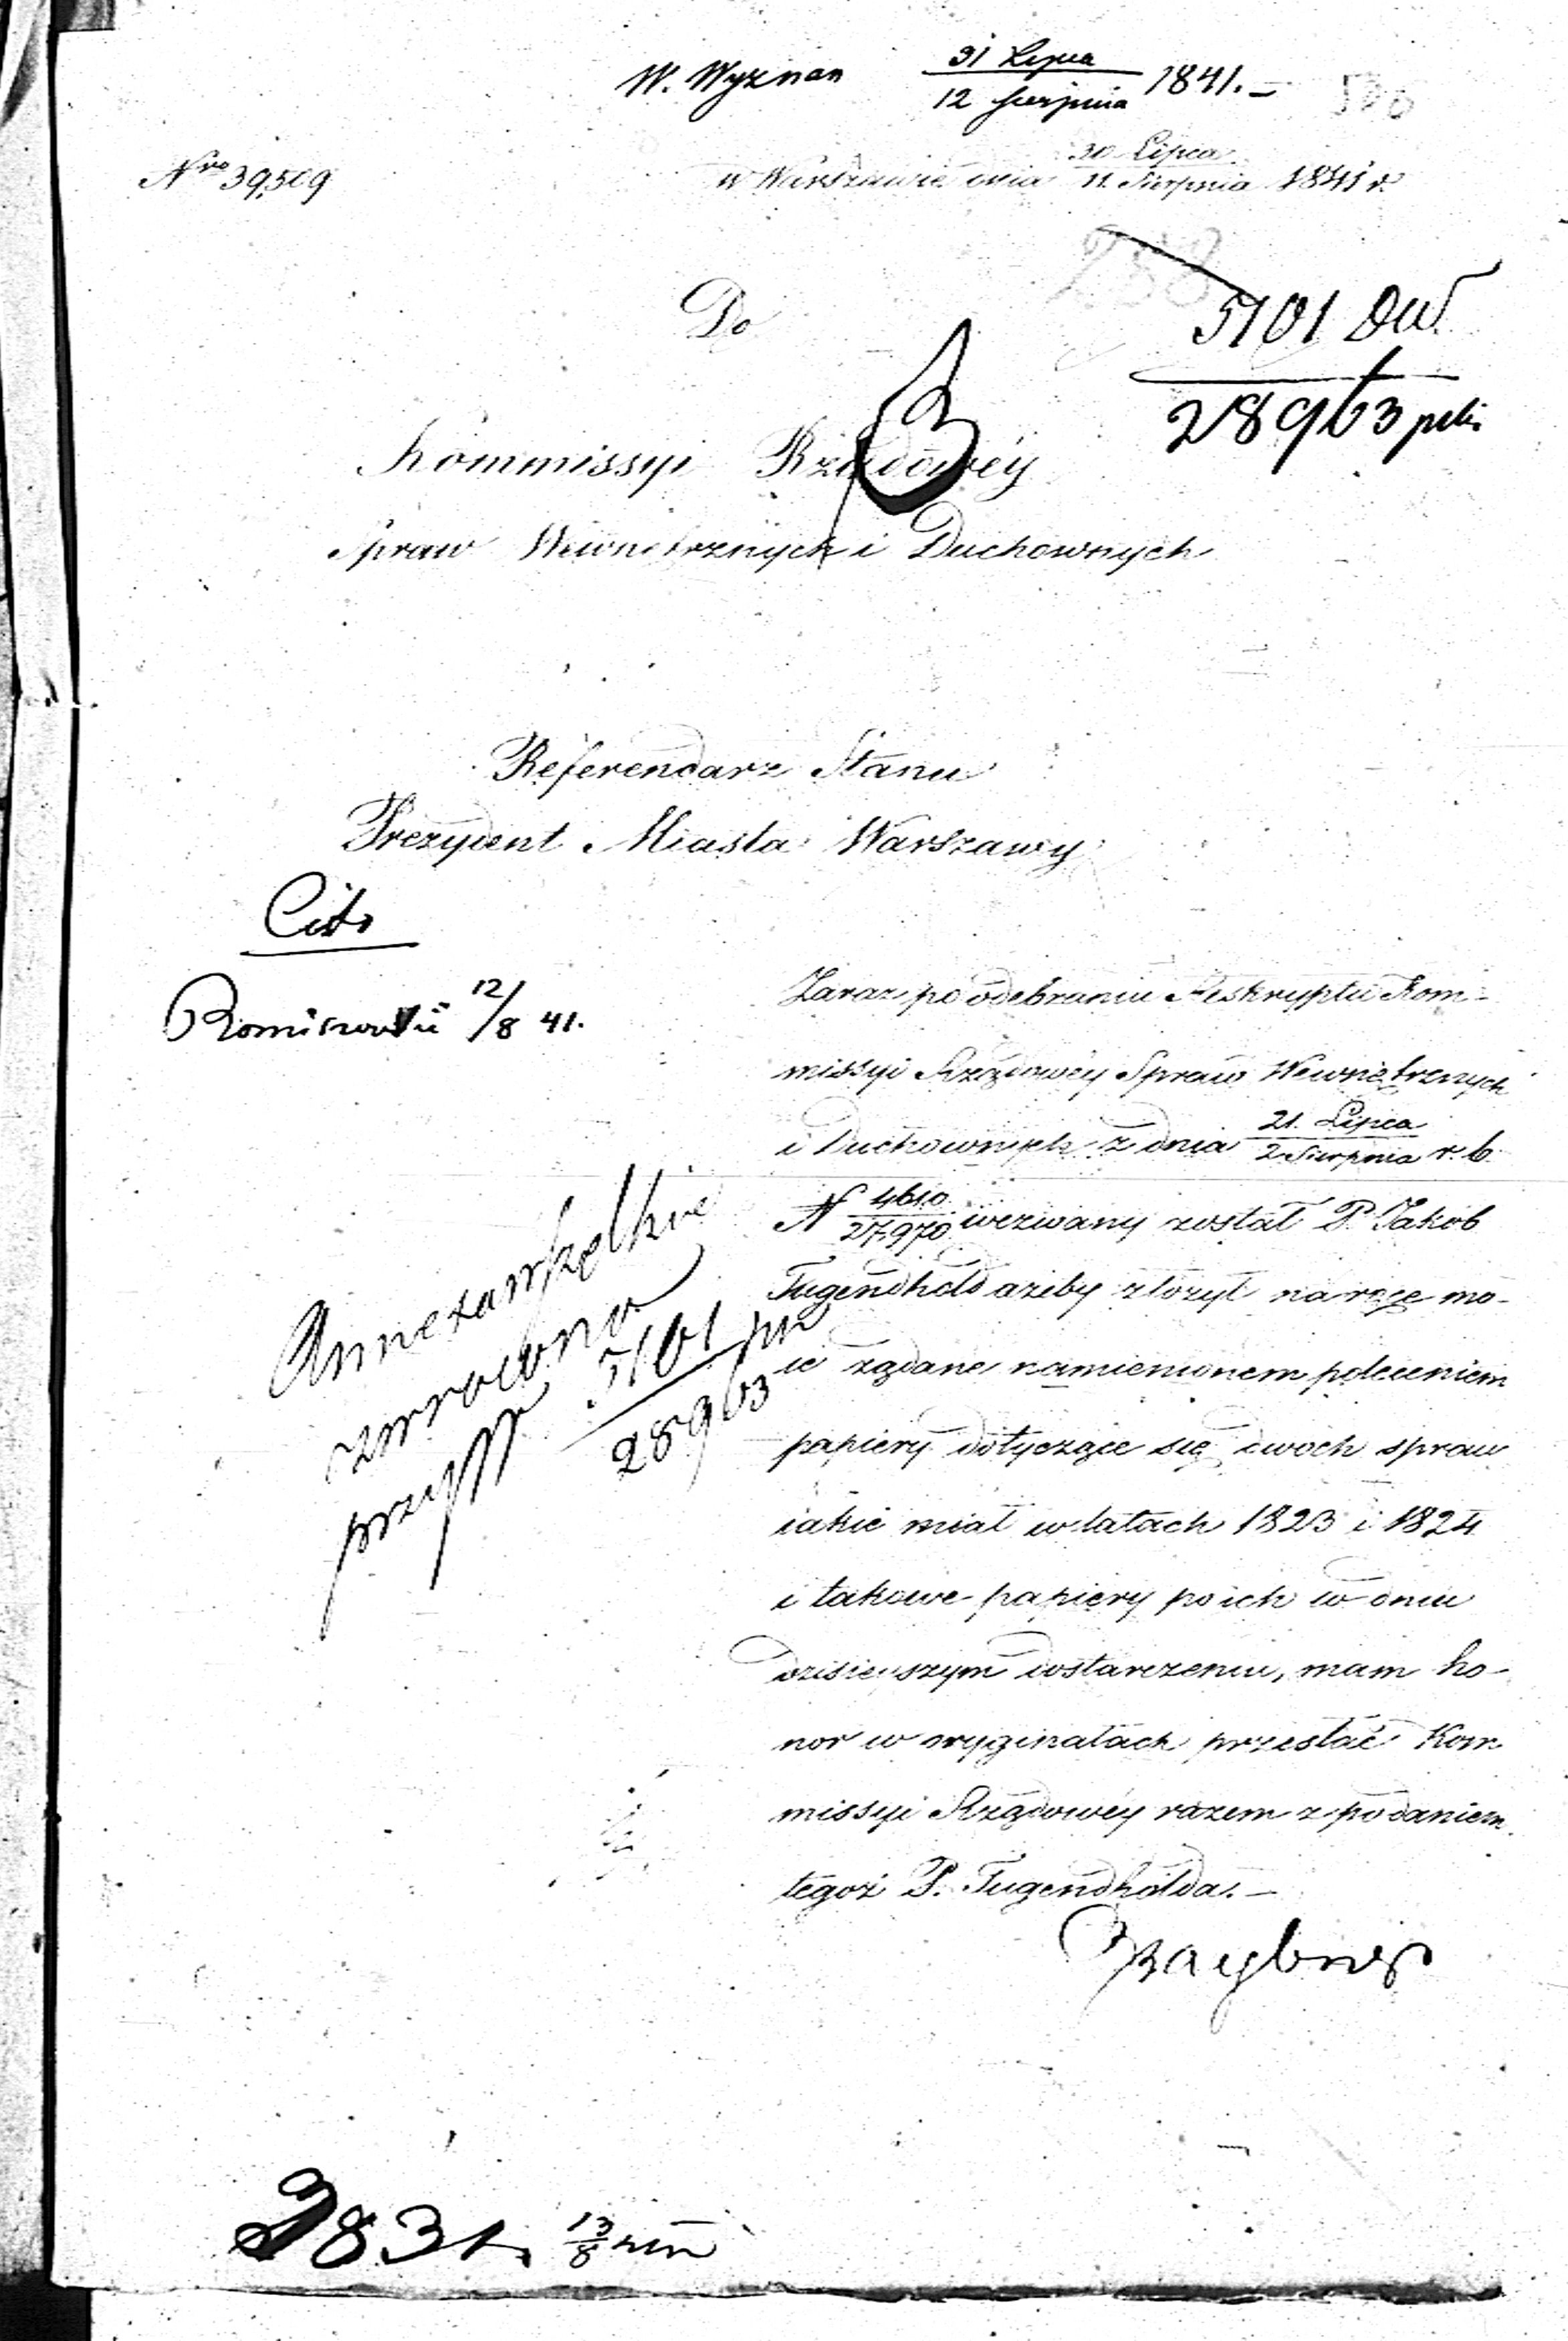 W. Wyznan 31 Lipca / 12 Sierpnia 1841. –
30 Lipca
Nro 39,509 w Warszawie dnia 11. Sierpnia 1841 r.
258
Do
5101 DW
28963
Kommissyi Rządowéy
Spraw Wewnętrznych i Duchownych
Referendarz Stanu
Prezydent Miasta Warszawy
Cito
12/8 41.
Zaraz po odebraniu Reskryptu Kom-
missyi Rządowéy Spraw Wewnętrznych
i Duchownych z dnia 21. Lipca / 2 Sierpnia r. b.
N 4610 / 27,970 wezwany został P. Jakób
Tugendhold ażeby złożył na ręce mo-
ie żądane namienionem poleceniem
papiery dotyczące się dwoch spraw
iakie miał w latach 1823 i 1824
i takowe papiery po ich w dniu
dzisieyszym dostarczeniu, mam ho-
nor w oryginałach przesłać Kom
missyi Rządowéy razem z podaniem
tegoż P. Tugendholda. –
Annexa wszelkie
zwrócono
przy 5101
28963
2831. 13/8